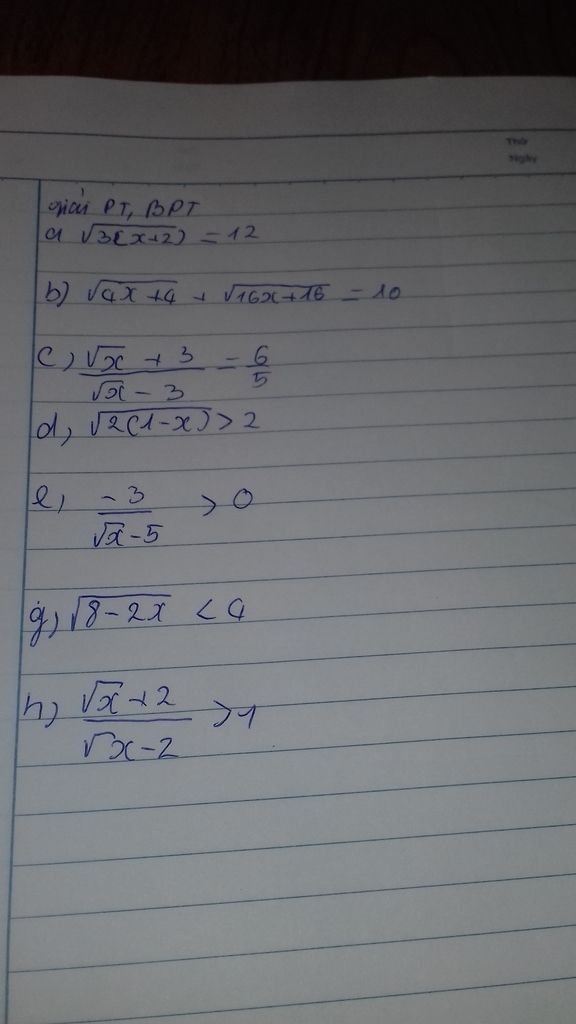 Thứ
Ngày
giải PT, BPT
a √3(x+2) = 12
b) √4x+4 + √16x+16 = 10
c) (√x + 3)/(√x - 3) = 6/5
d) √2(1-x) > 2
e) -3/(√x-5) > 0
g) √8-2x < 4
h) (√x+2)/(√x-2) > 1